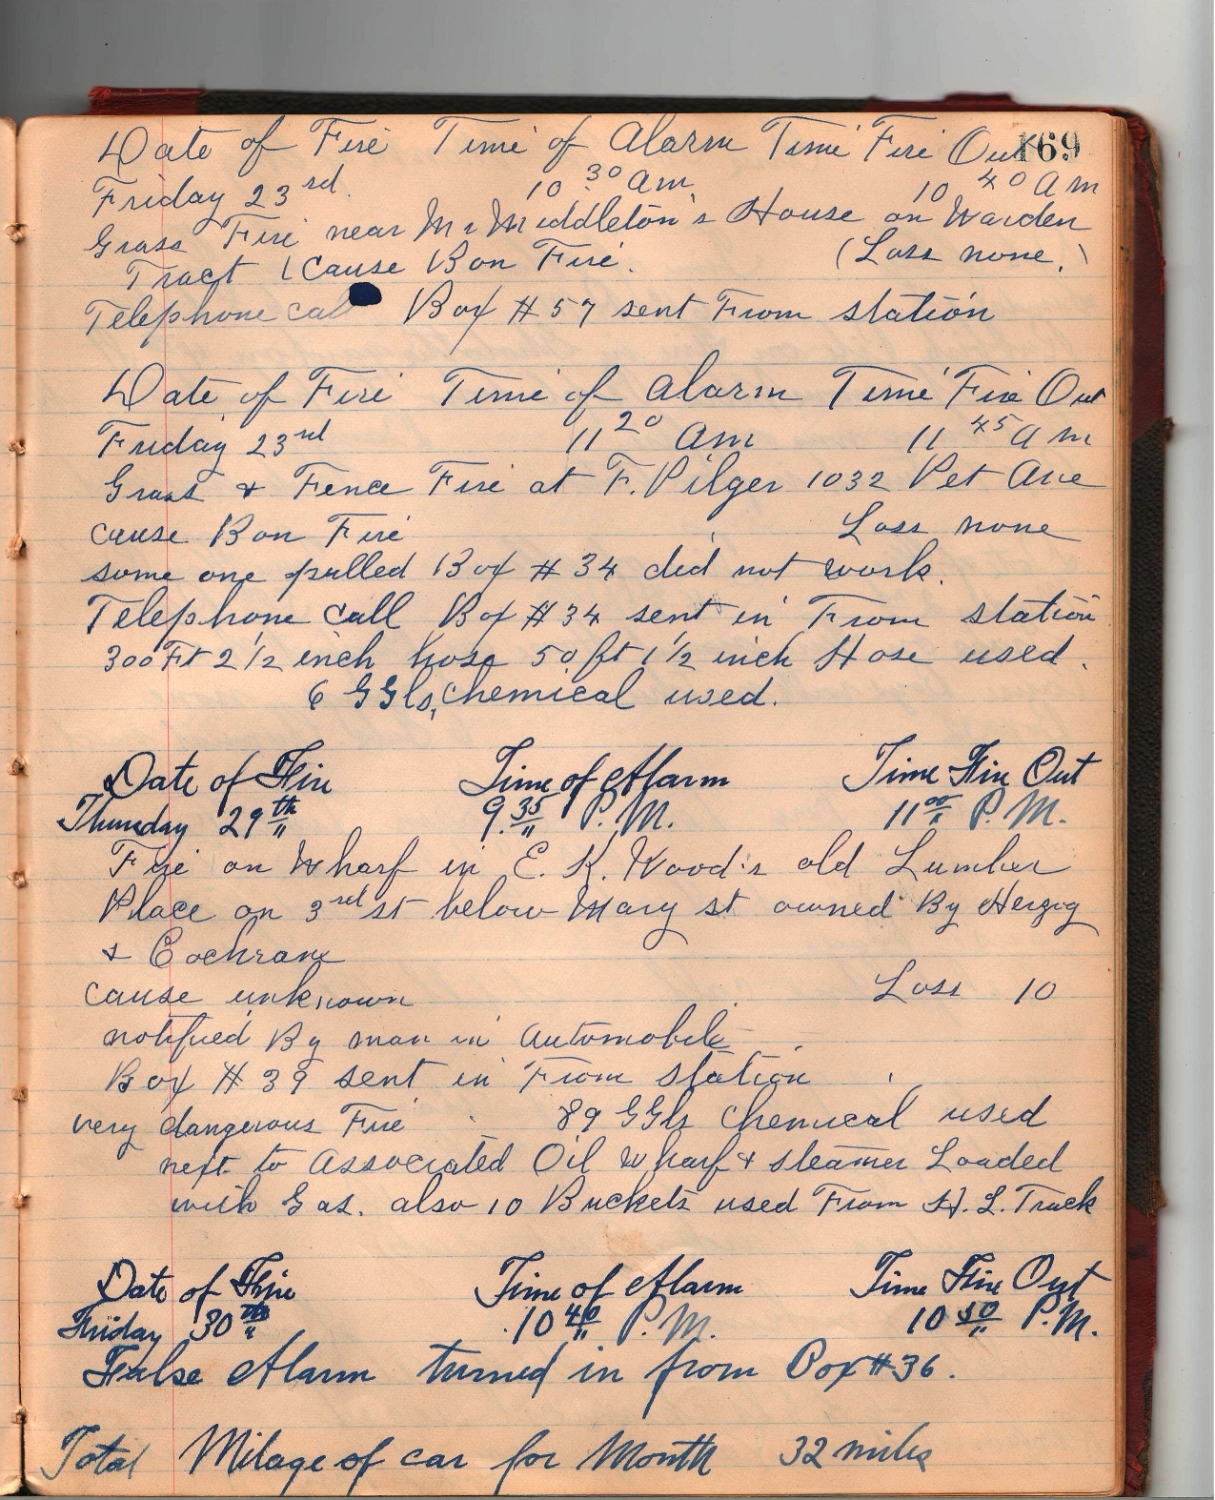 169
Date of Fire Time of Alarm Time Fire Out
Friday 23rd. 10 30 Am. 10 40 Am
Grass Fire near Mr Middleton's House on Warden
Tract (Cause Bon Fire. (Loss none.)
Telephone call Box #57 sent From station
Date of Fire Time of Alarm Time Fire Out
Friday 23rd 11 20 Am 11 45 Am
Grass & Fence Fire at F. Pilger 1032 Pet Ave
cause Bon Fire Loss none
some one pulled Box #34 did not work.
Telephone Call Box #34 sent in From station
300 Ft 2 1/2 inch hose 50 ft 1 1/2 inch Hose used.
6 GGls, Chemical used.
Date of Fire Time of Alarm Time Fire Out
Thursday 29th 9.35 P.M. 11 00 P.M.
Fire on Wharf in E. K. Wood's old Lumber
Place on 3rd st below Mary st owned By Herzog
& Cochrane
Cause unknown Loss 10
notified By man in Automobile
Box #39 sent in From station
very dangerous Fire 89 GGls Chemical used
next to Associated Oil wharf & steamer Loaded
with Gas. also 10 Buckets used From H. L. Truck
Date of Fire Time of Alarm Time Fire Out
Friday 30th 10 40 P.M. 10 50 P.M.
False Alarm turned in from Box #36.
Total Milage of car for Month 32 miles